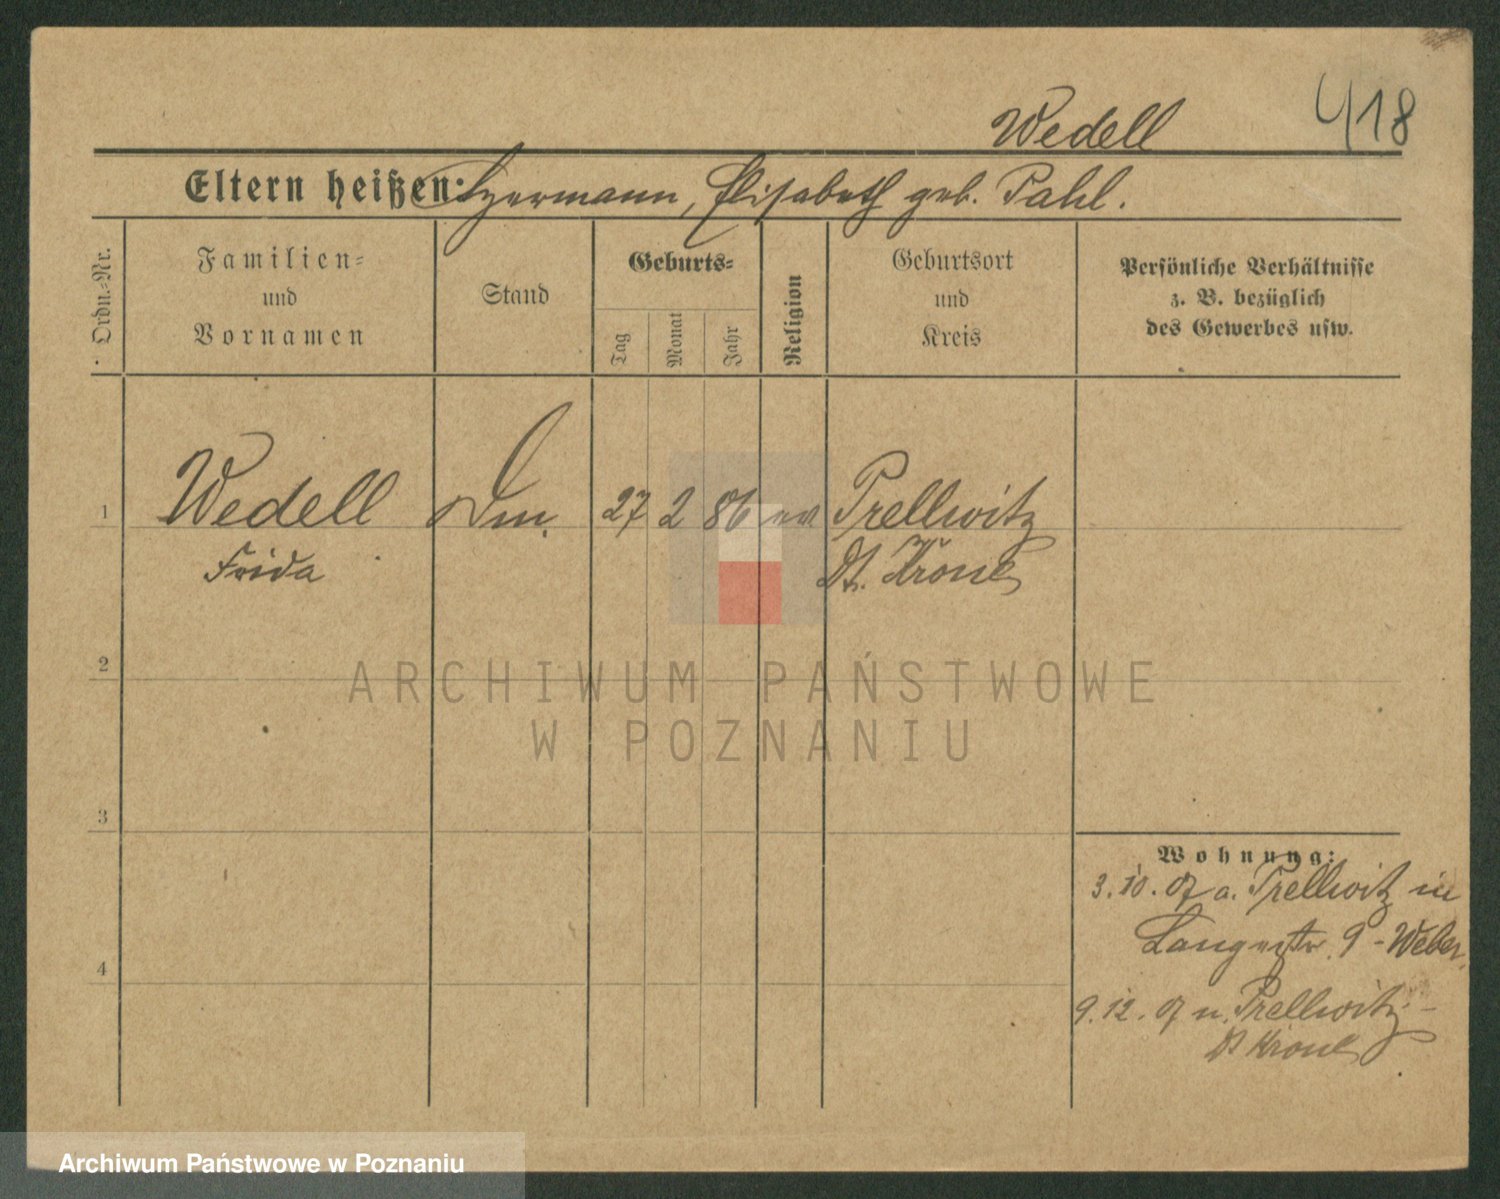 Wedell 418
Eltern heißen: Hermann, Elisabeth geb. Pahl.
Ordn.-Nr.
Familien-
und
Vornamen
Stand
Geburts-
Tag
Monat
Jahr
Religion
Geburtsort
und
Kreis
Persönliche Verhältnisse
z. B. bezüglich
des Gewerbes usw.
1 Wedell 27 2 86 ev. Prellwitz
Frida Dt. Krone
2
ARCHIWUM PAŃSTWOWE
W POZNANIU
3
Wohnung:
3.10.07 a. Prellwitz in
Langestr. 9 - Weber.
4
9.12.07 n. Prellwitz -
Dt Krone
Archiwum Państwowe w Poznaniu